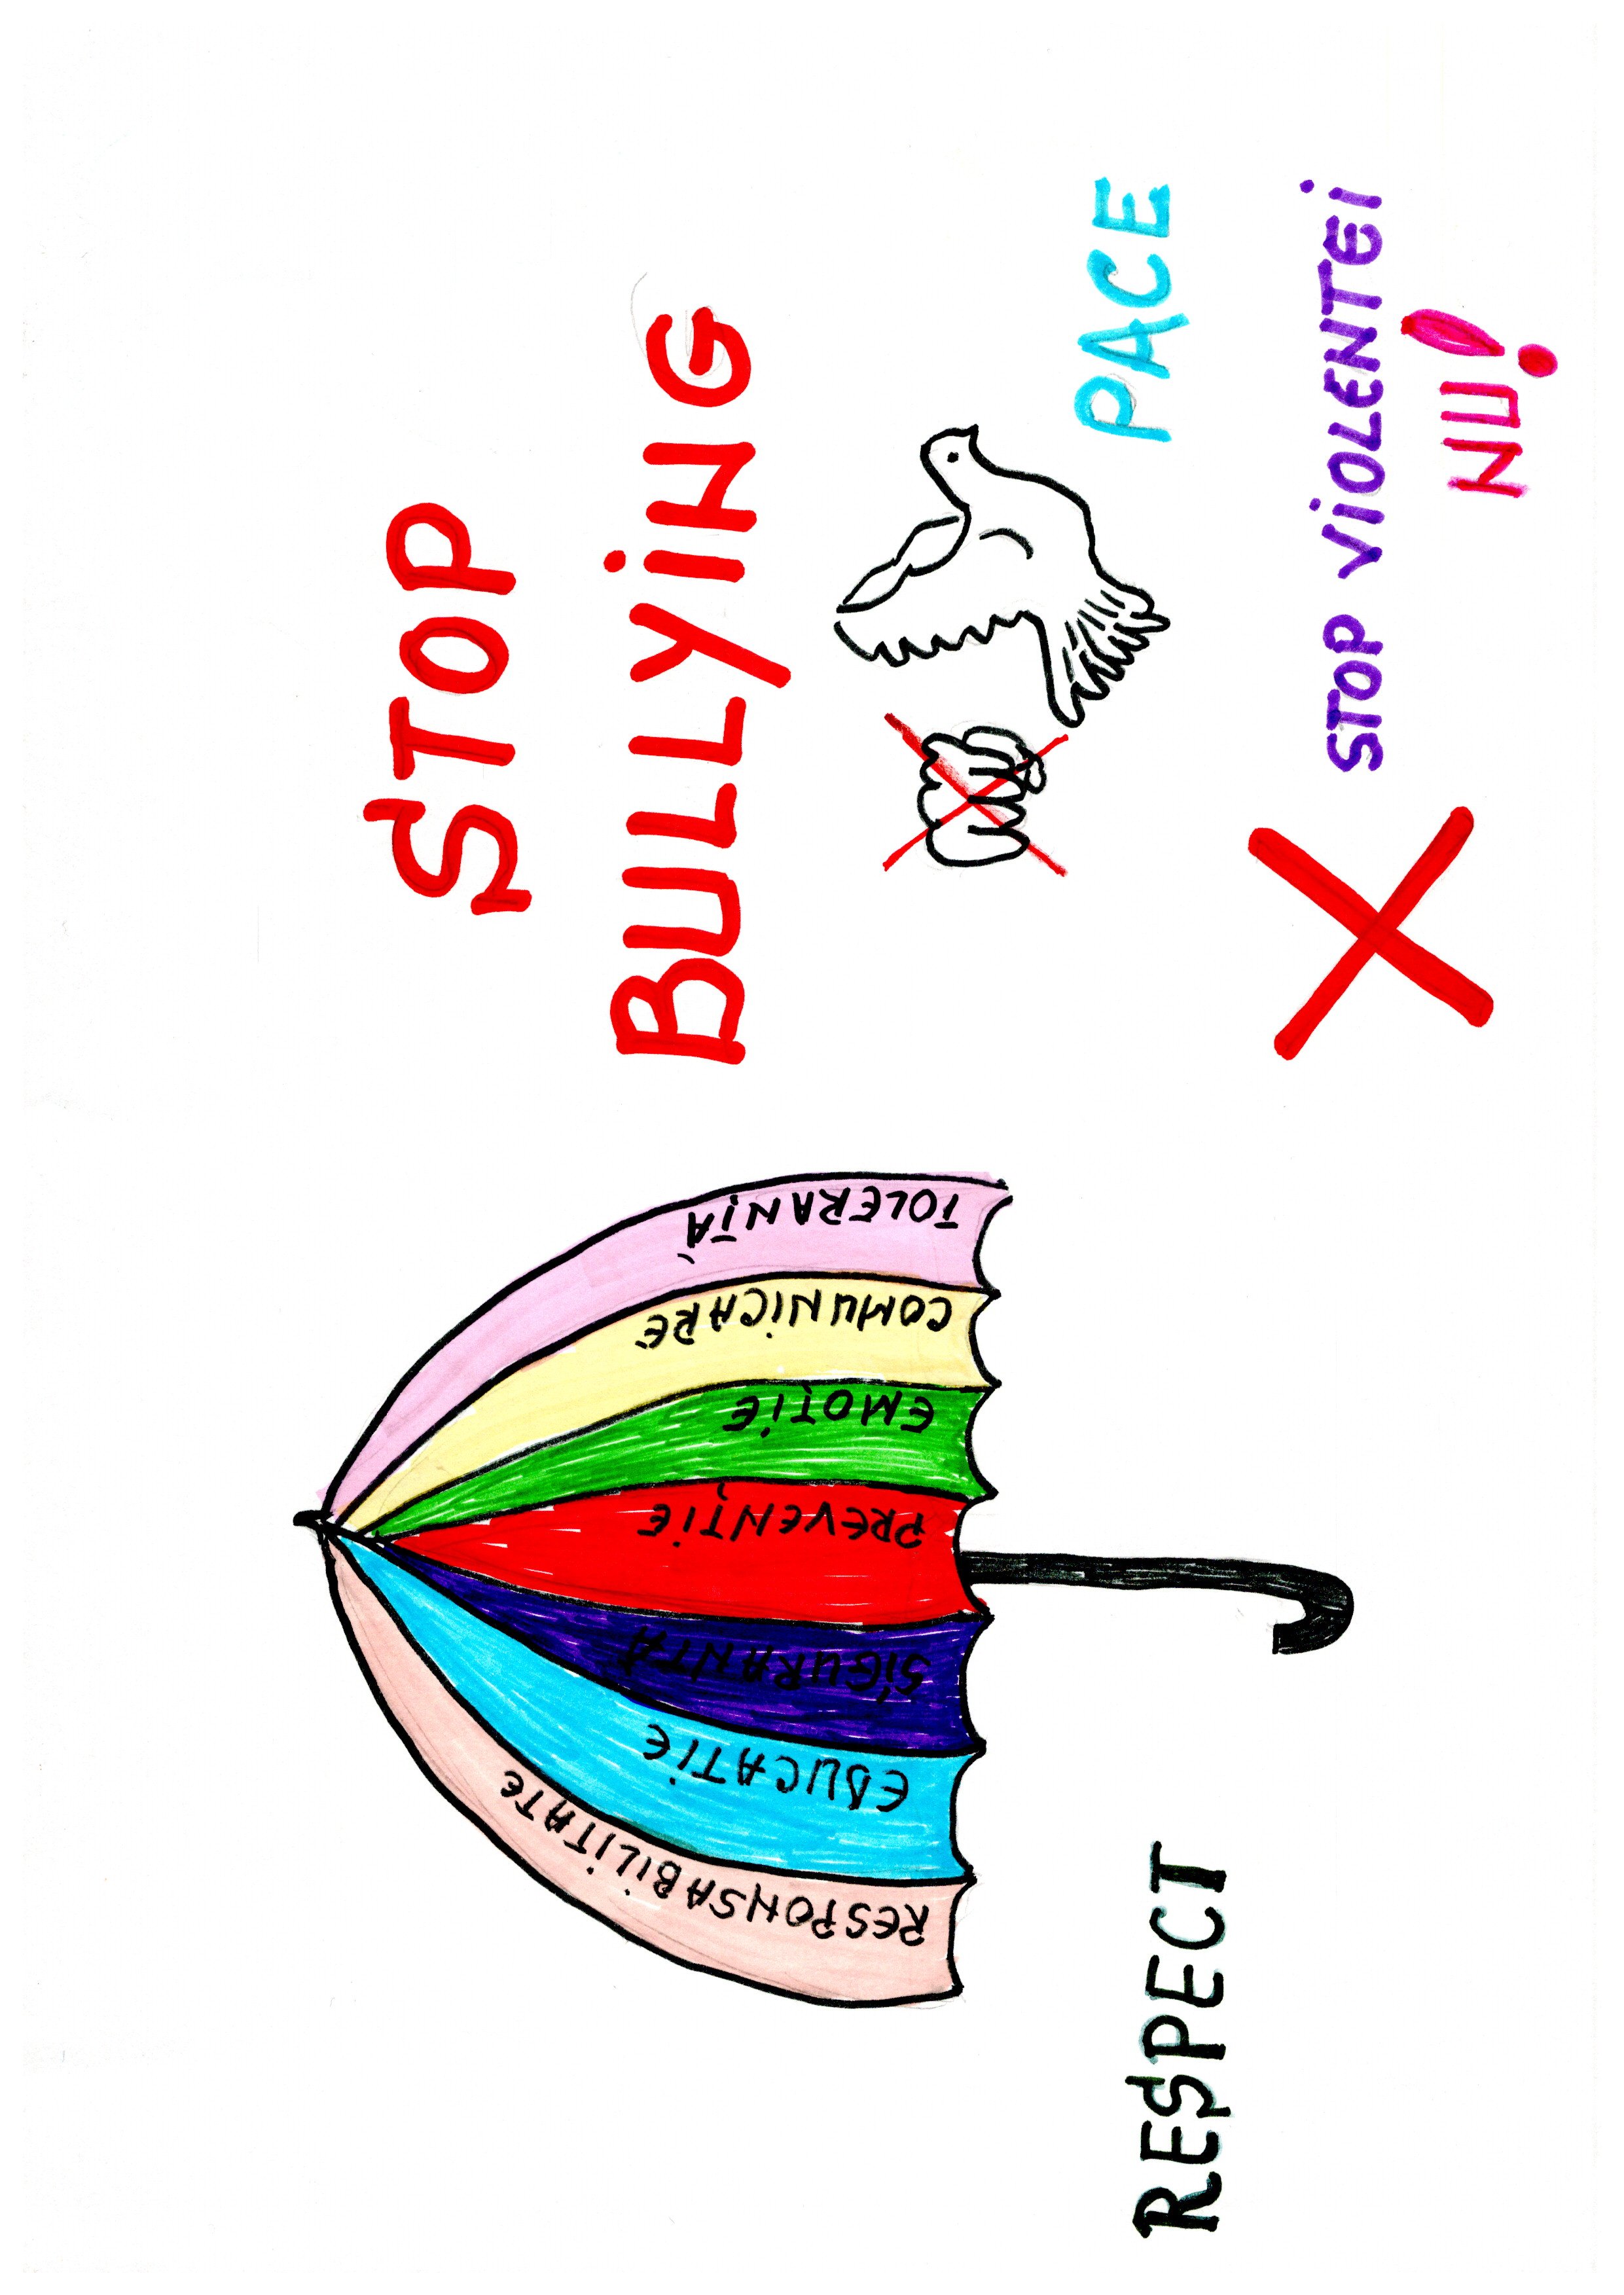 STOP
BULLYiNG
PACE
STOP ViOLENTEi
NU!
RESPONSABiLiTATE
EDUCATiE
SiGURANTA
PREVENȚiE
EMOȚiE
COMUNiCARE
TOLERANȚĂ
RESPECT